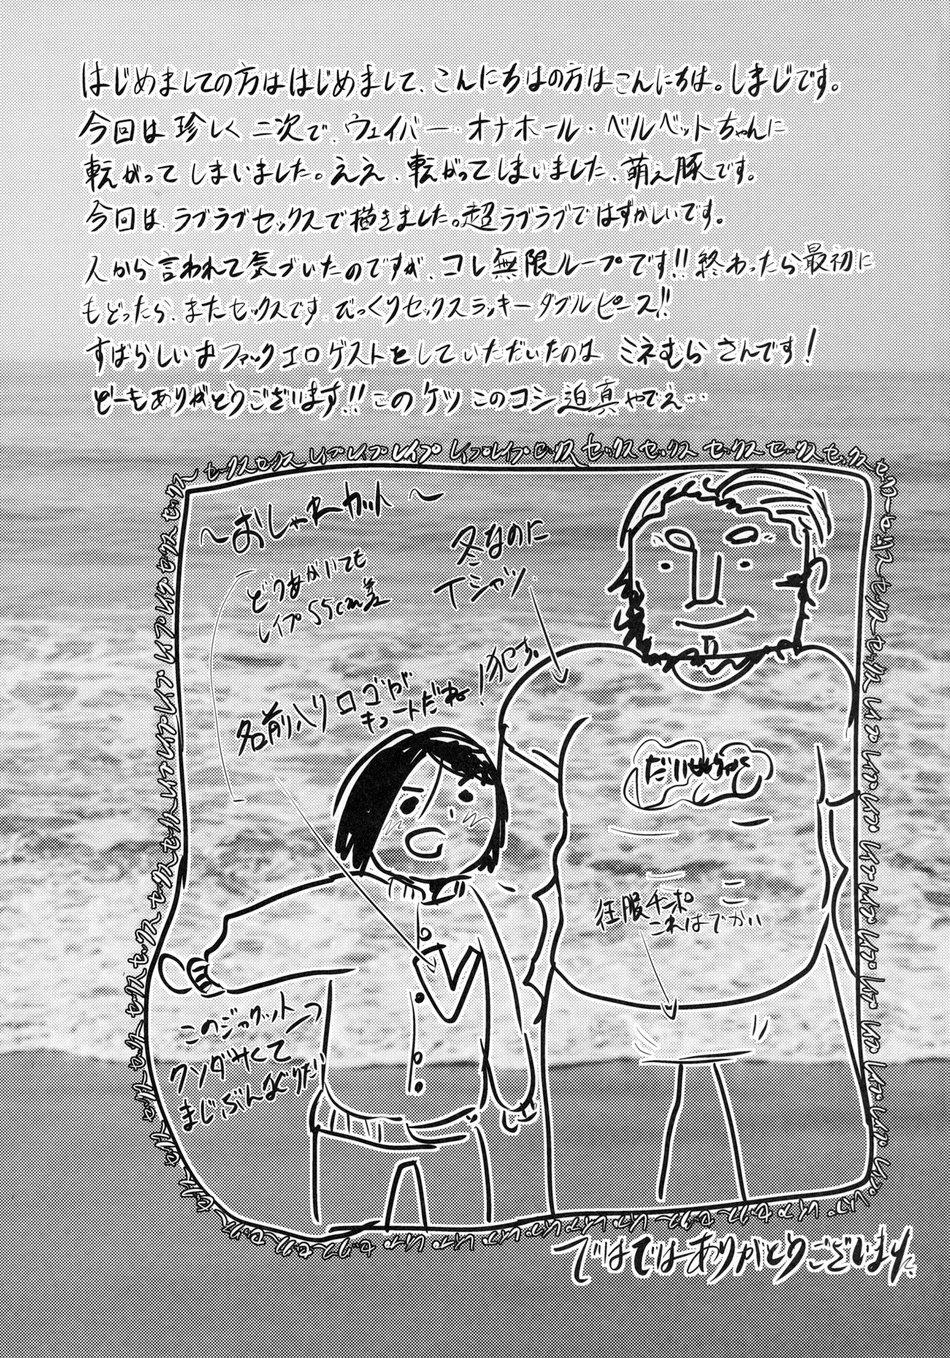 はじめましての方ははじめまして、こんにちはの方はこんにちは。しまじです。
今回は珍しく二次で、ウェイバー・オナホール・ベルベットちゃんに
転がってしまいました。ええ、転がってしまいました、萌え豚です。
今回は、ラブラブセックスで描きました。超ラブラブではずかしいです。
人から言われて気づいたのですが、コレ無限ループです!!終わったら最初に
もどったら、またセックスです。びっくりセックスラッキーダブルピース!!
すばらしいおファックエロゲストをしていただいたのは ミネむらさんです!
どーもありがとうございます!!このケツこのコシ迫真やでえ…
〜おしゃれカット〜
どうあがいても
レイプ55cm差
冬なのに
Tシャツ
名前入りロゴが
キュートだね!犯す。
征服チンポ
これはでかい
このジャケット
クソダサくて
まじぶんなぐりだ
ではではありがとうございました